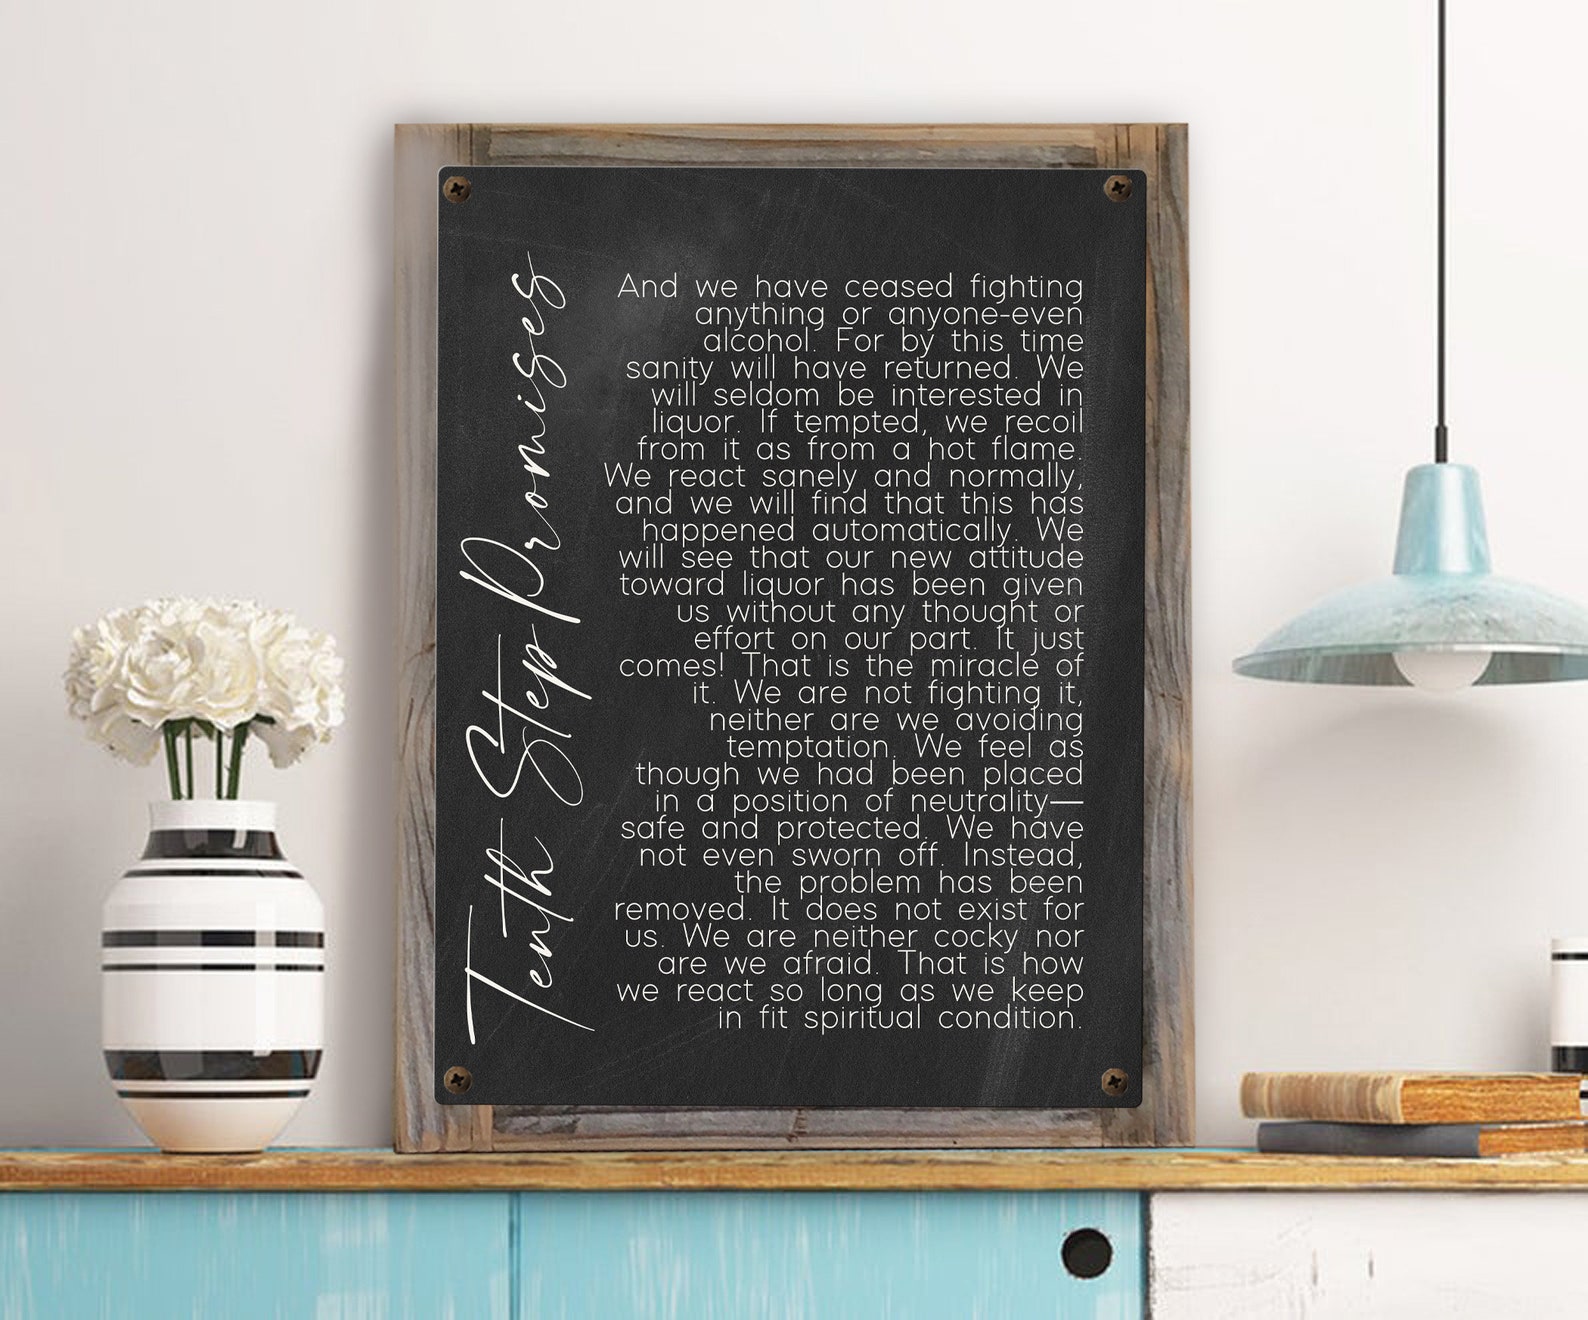 Tenth Step Promises
And we have ceased fighting
anything or anyone-even
alcohol. For by this time
sanity will have returned. We
will seldom be interested in
liquor. If tempted, we recoil
from it as from a hot flame.
We react sanely and normally,
and we will find that this has
happened automatically. We
will see that our new attitude
toward liquor has been given
us without any thought or
effort on our part. It just
comes! That is the miracle of
it. We are not fighting it,
neither are we avoiding
temptation. We feel as
though we had been placed
in a position of neutrality—
safe and protected. We have
not even sworn off. Instead,
the problem has been
removed. It does not exist for
us. We are neither cocky nor
are we afraid. That is how
we react so long as we keep
in fit spiritual condition.